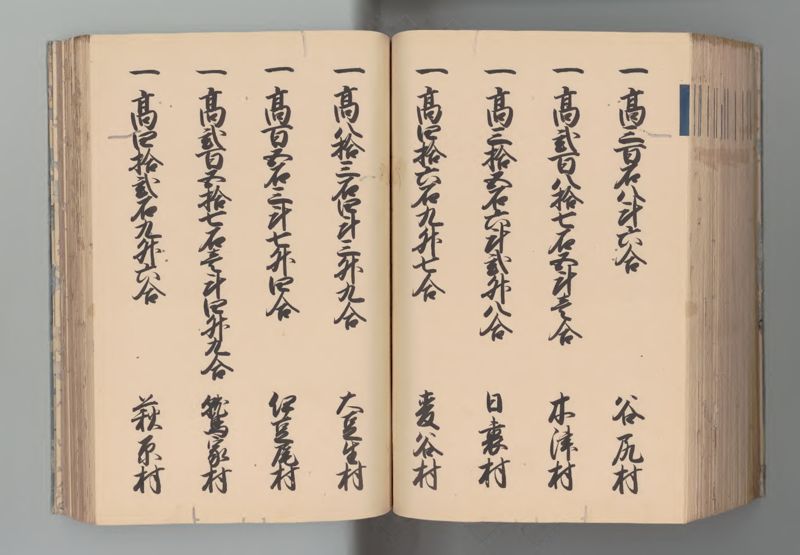 一 高三百石八斗六合 谷尻村
一 高弐百八拾七石五斗壱合 木津村
一 高三拾五石六斗弐升八合 日裏村
一 高四拾六石九升七合 麦谷村
一 高八拾三石四斗三升九合 大豆生村
一 高百五石三斗七升四合 伊豆尾村
一 高弐百五拾七石壱斗四升九合 鷲家村
一 高四拾弐石九升六合 萩原村